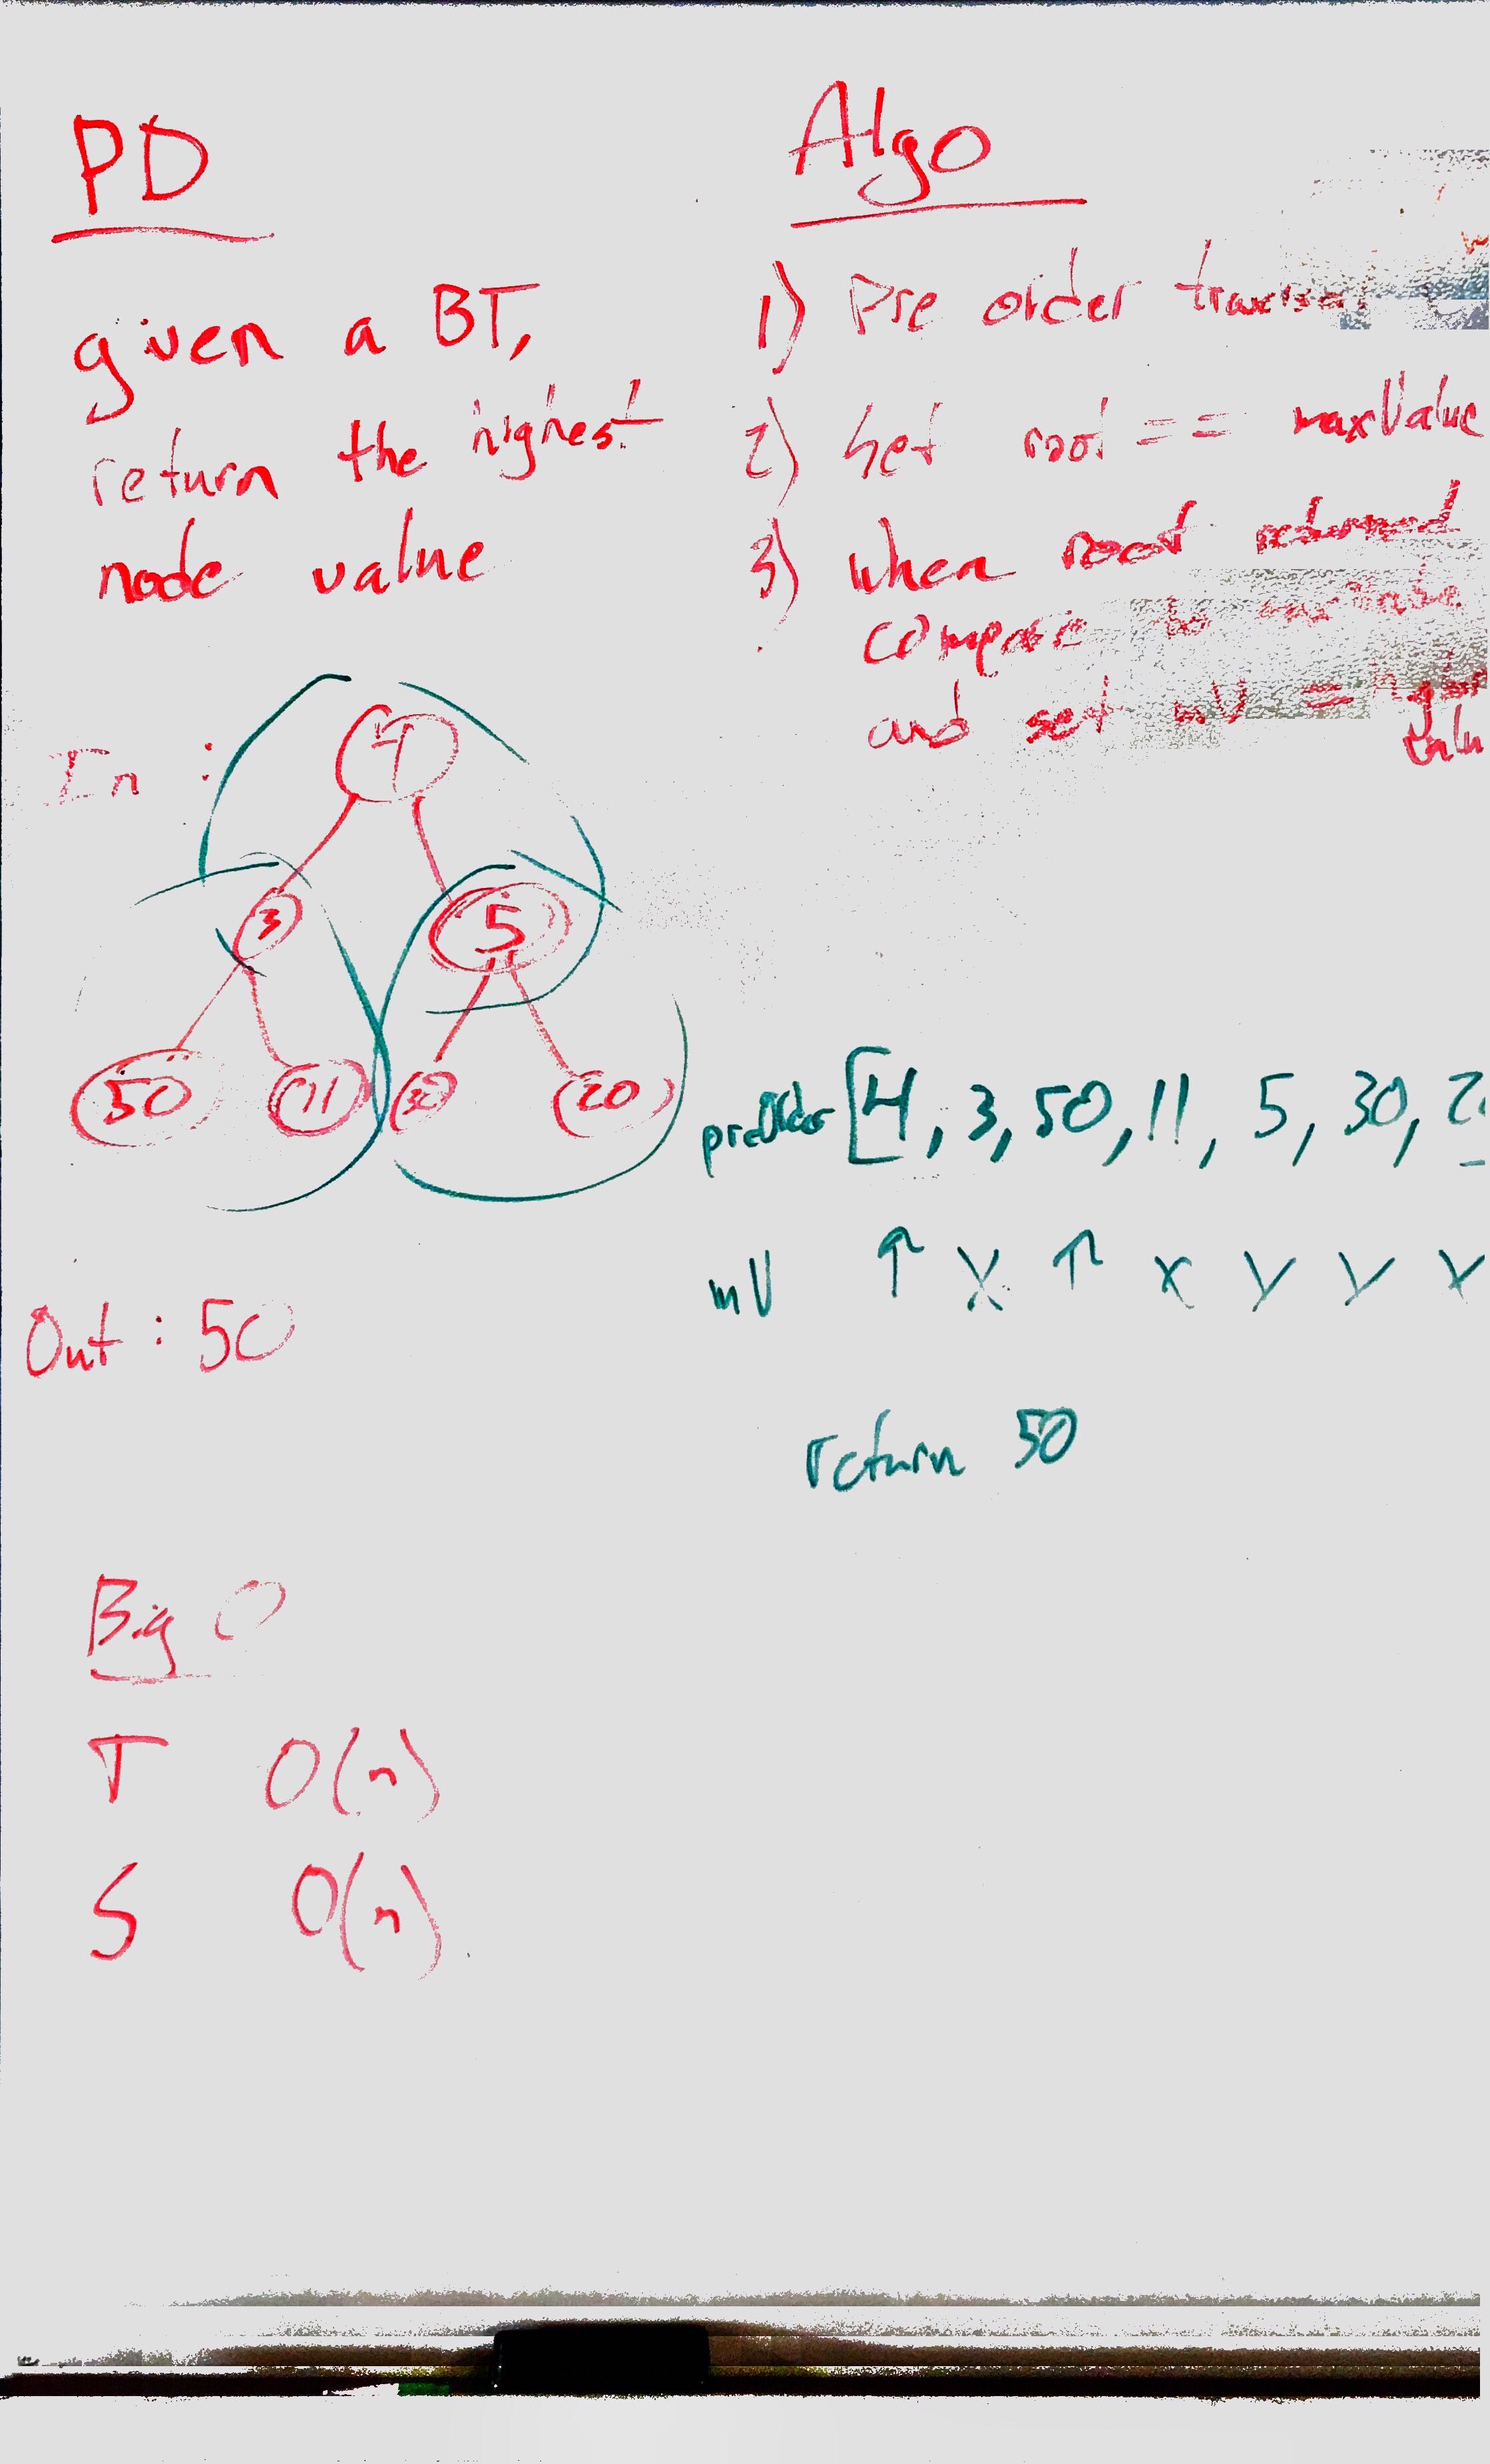 PD
given a BT,
return the highest
node value
In :
4
3
5
50
11
30
20
Out : 50
Big O
T O(n)
S O(n)
Algo
1) Pre order traversal
2) Set root == maxValue
3) When root returned
compare to maxValue
and set mV = higher
value
preOrder [4, 3, 50, 11, 5, 30, 2
mV ↑ X ↑ X X X X
return 50